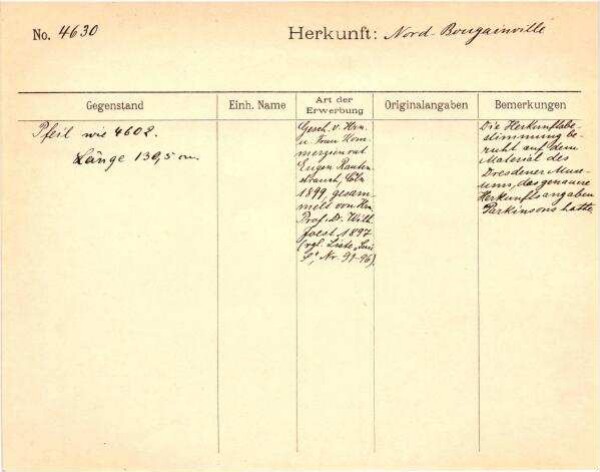 No. 4630
Herkunft: Nord-Bougainville
Gegenstand
Einh. Name
Art der Erwerbung
Originalangaben
Bemerkungen
Pfeil wie 4602.
Länge 130,5 cm.
Gesch. v. Hrn.
u. Frau Kom-
merzienrat
Eugen Rauten-
strauch, Cöln
1899, gesam-
melt von Hrn.
Prof. Dr. Wilh.
Joest, 1897
(vgl. Liste
Nr. 91-96).
Die Herkunftsbe-
stimmung be-
ruht auf dem
Material des
Dresdener Muse-
ums, das genauere
Herkunftsangaben
Parkinsons hatte.